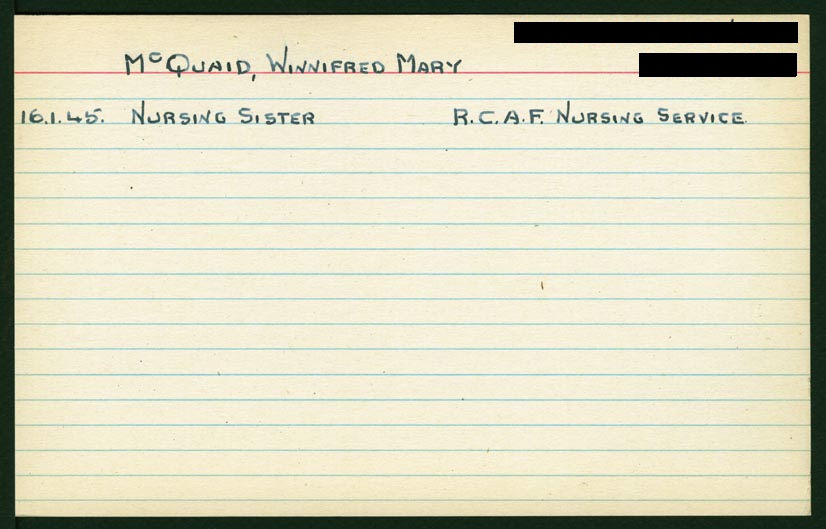 McQUAID, WINNIFRED MARY
16.1.45. NURSING SISTER R.C.A.F. NURSING SERVICE.